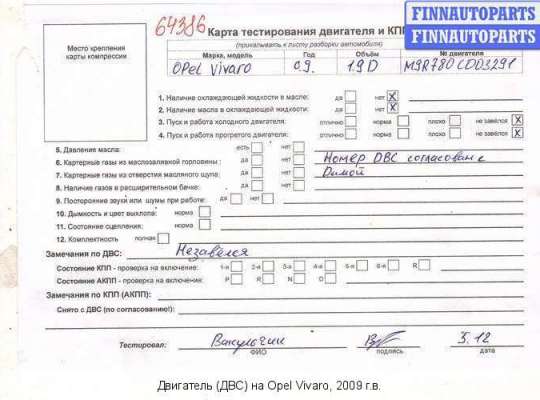 FINNAUTOPARTS
FINNAUTOPARTS
64386
Карта тестирования двигателя и КПП
(прикалывать к листу разборки автомобиля)
Место крепления карты компрессии
Марка, модель Год Объём № двигателя
OPEL Vivaro 09. 1.9D M9R780C003291
1. Наличие охлаждающей жидкости в масле: да нет X
2. Наличие масла в охлаждающей жидкости: да нет X
3. Пуск и работа холодного двигателя: отлично норма плохо не завёлся X
4. Пуск и работа прогретого двигателя: отлично норма плохо не завёлся X
5. Давление масла: есть нет
6. Картерные газы из маслозаливной горловины: да нет Номер ДВС согласован с
7. Картерные газы из отверстия масляного щупа: да нет Димой
8. Наличие газов в расширительном бачке: да нет
9. Посторонние звуки или шумы при работе: да нет
10. Дымность и цвет выхлопа: норма
11. Состояние сцепления: норма
12. Комплектность полная
Замечания по ДВС: Незавёлся
Состояние КПП - проверка на включение: 1-я 2-я 3-я 4-я 5-я 6-я R
Состояние АКПП - проверка на включение: P R N D
Замечания по КПП (АКПП):
Снято с ДВС (по согласованию!):
Тестировал: 5.12
ФИО подпись дата
Двигатель (ДВС) на Opel Vivaro, 2009 г.в.